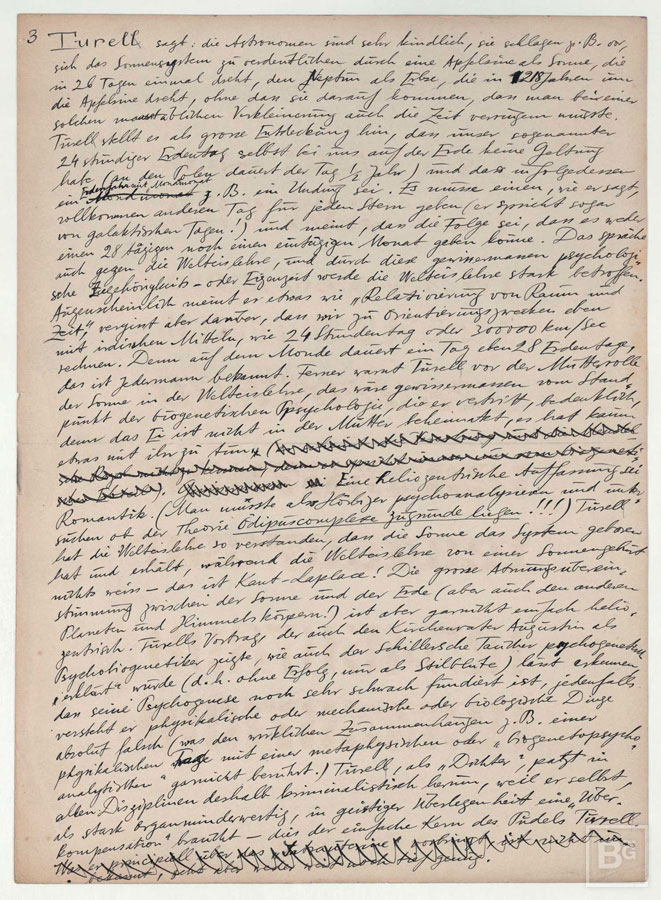 3 Turell sagt: die Astronomen sind sehr kindlich, sie schlagen z.B. vor,
sich das Sonnensystem zu verdeutlichen durch eine Apfelsine als Sonne, die
in 26 Tagen einmal dreht, den Neptun als Erbse, die in 1218 Jahren um
die Apfelsine dreht, ohne dass sie darauf kommen, dass man bei einer
solchen masstäblichen Verkleinerung auch die Zeit verringern müsste.
Turell stellt es als grosse Entdeckung hin, dass unser sogenannter
24 stündiger Erdentag selbst bei uns auf der Erde keine Geltung
habe (an den Polen dauert der Tag ½ Jahr) und dass infolgedessen
ein Mondmonat z.B. ein Unding sei. Es müsse einen, wie er sagt,
vollkommen anderen Tag für jeden Stern geben (er spricht sogar
von galaktischen Tagen!) und meint, dass die Folge sei, dass es weder
einen 28 tägigen noch einen eintägigen Monat geben könne. Das spräche
auch gegen die Welteislehre, und durch diese gewissermassen psychologi-
sche Zugehörigkeits- oder Eigenzeit werde die Welteislehre stark betroffen.
Augenscheinlich meint er etwas wie „Relativierung von Raum und
Zeit“, vergisst aber darüber, dass wir zu Orientierungszwecken eben
mit irdischen Mitteln, wie 24 Stundentag oder 300000 km/sec
rechnen. Denn auf dem Monde dauert ein Tag eben 28 Erdentage,
das ist jedermann bekannt. Ferner warnt Turell vor der Mutterrolle
der Sonne in der Welteislehre, das wäre gewissermassen vom Stand-
punkt der biogenetischen Psychologie, die er vertritt, bedenklich,
denn das Ei ist nicht in der Mutter beheimatet, es hat kaum
etwas mit ihr zu tun
Eine heliozentrische Auffassung sei
Romantik. (Man müsste also Hörbiger psychoanalysieren und unter-
suchen ob der Theorie Ödipuscomplexe zugrunde liegen!!!) Turell
hat die Welteislehre so verstanden, dass die Sonne das System geboren
hat und erhält, während die Welteislehre von einer Sonnengeburt
nichts weiss – das ist Kant-Laplace! Die grosse Atmungsüberein-
stimmung zwischen der Sonne und der Erde (aber auch den anderen
Planeten und Himmelskörpern!) ist aber garnicht einfach helio-
zentrisch. Turells Vortrag, der auch den Kirchenvater Augustin als
Psychobiogenetiker zeigte, wie auch der Schillersche Taucher psychogenetisch
„erklärt“ wurde (d.h. ohne Erfolg, nur als Stilblüte) lässt erkennen,
dass seine Psychognese noch sehr schwach fundiert ist, jedenfalls
versteht er physikalische oder mechanische oder biologische Dinge
absolut falsch (was den wirklichen Zusammenhängen z.B. einer
physikalischen Frage mit einer metaphysischen oder „biogenetopsycho-
analytischen“ garnicht berührt.) Turell, als „Dichter“, patzt in
allen Disciplinen deshalb kriminalistisch herum, weil er selbst,
als stark organminderwertig, in geistiger Überlegenheit eine „Über-
kompensation“ braucht – dies der einfache Kern des Pudels Turell.